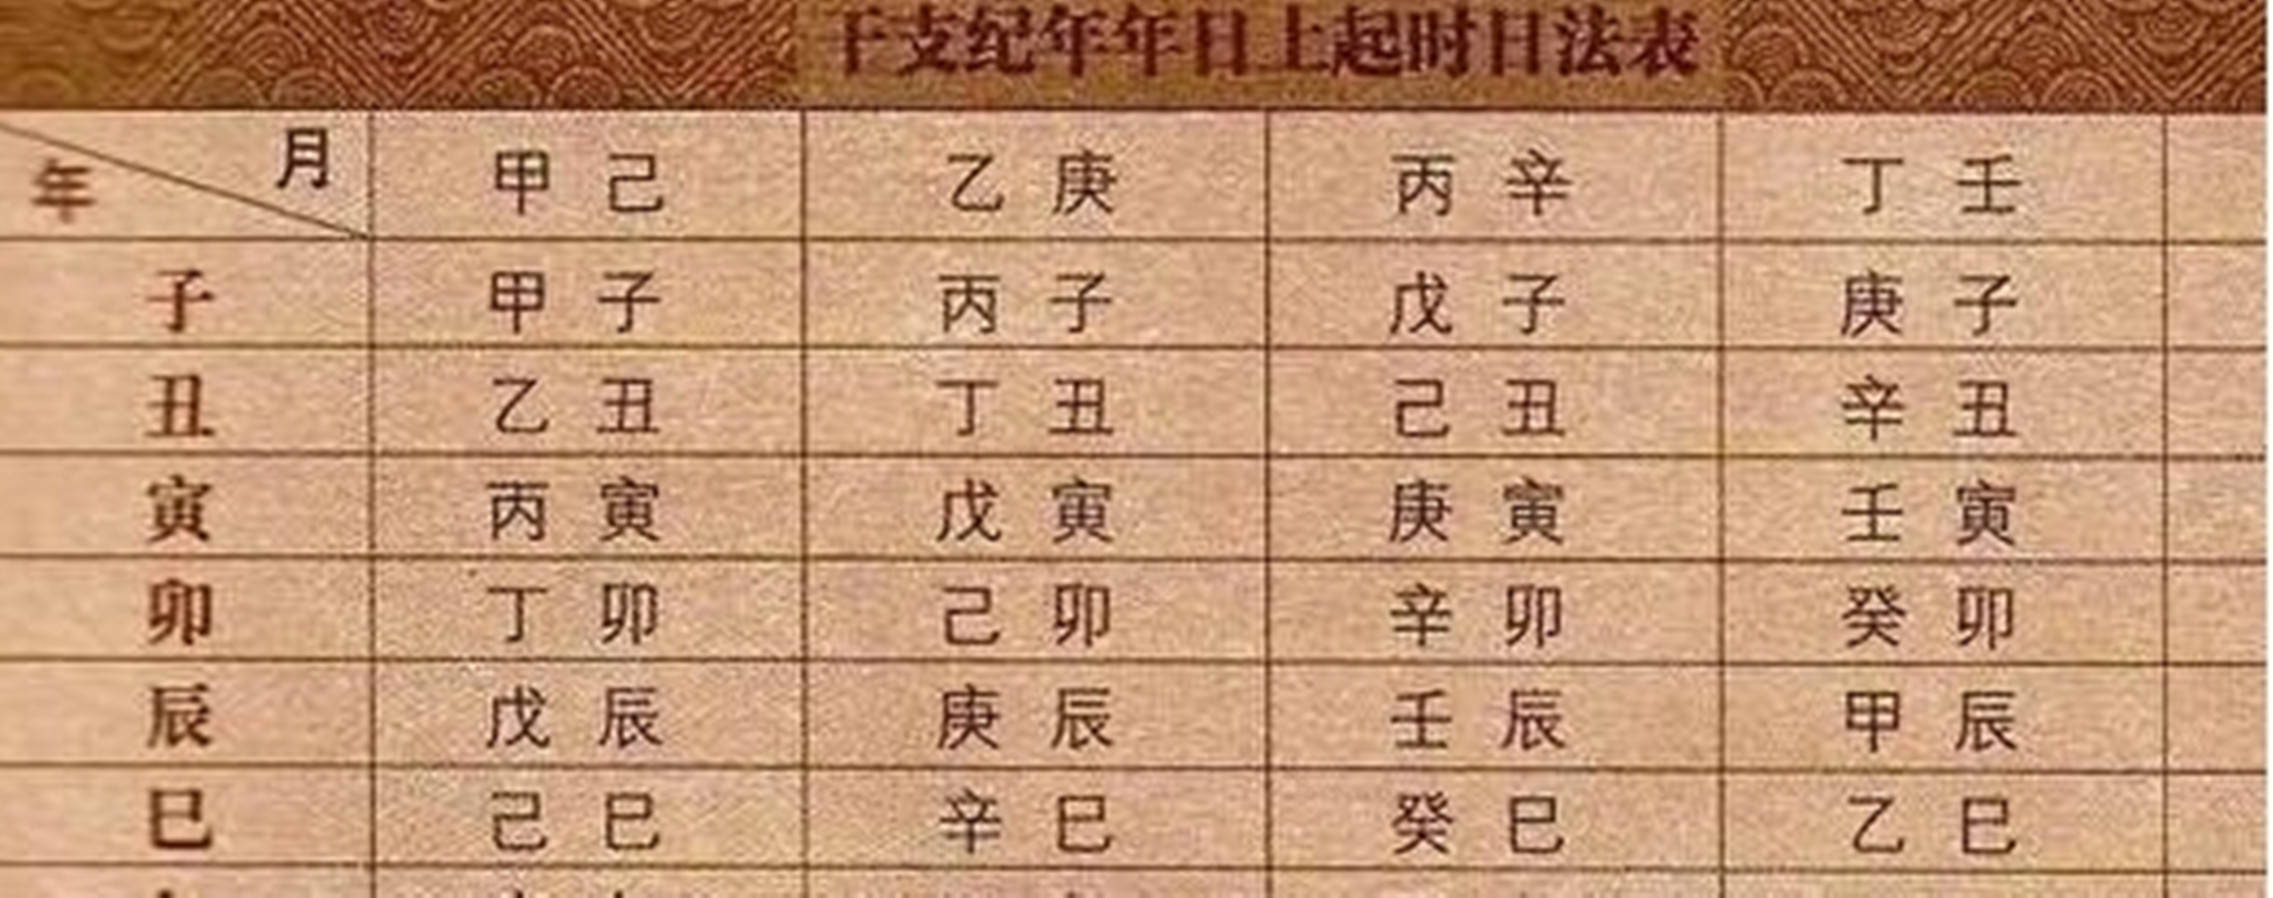 干支纪年年日上起时日法表
月 甲己 乙庚 丙辛 丁壬
年
子 甲子 丙子 戊子 庚子
丑 乙丑 丁丑 己丑 辛丑
寅 丙寅 戊寅 庚寅 壬寅
卯 丁卯 己卯 辛卯 癸卯
辰 戊辰 庚辰 壬辰 甲辰
巳 己巳 辛巳 癸巳 乙巳